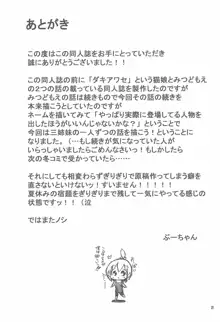 あとがき
この度はこの同人誌をお手にとっていただき
誠にありがとうございました！！
この同人誌の前に「ダキアワセ」という猫娘とみつどもえ
の２つの話の載っている同人誌を製作したのですが
みつどもえの話は続きもので今回その話の続きを
本来描こうとしていたのですが
ネームを描いてみて「やっぱり実際に登場してる人物を
出したほうがいいんじゃないかな？」ということで
今回は三姉妹の一人ずつの話を描こうということに
なりました。（…もし続きが気になっていた人が
いらっしゃいましたらごめんなさいっ！もしかしたら
次のキコミで受かっていたら…）
それにしても相変わらずぎりぎりで原稿作ってしまう癖を
直さないといけないッ！すいません！！！！
夏休みの宿題をぎりぎりまで残して一気にやってる感じの
状態ですッ！！（泣
ではまたノシ
ぶーちゃん